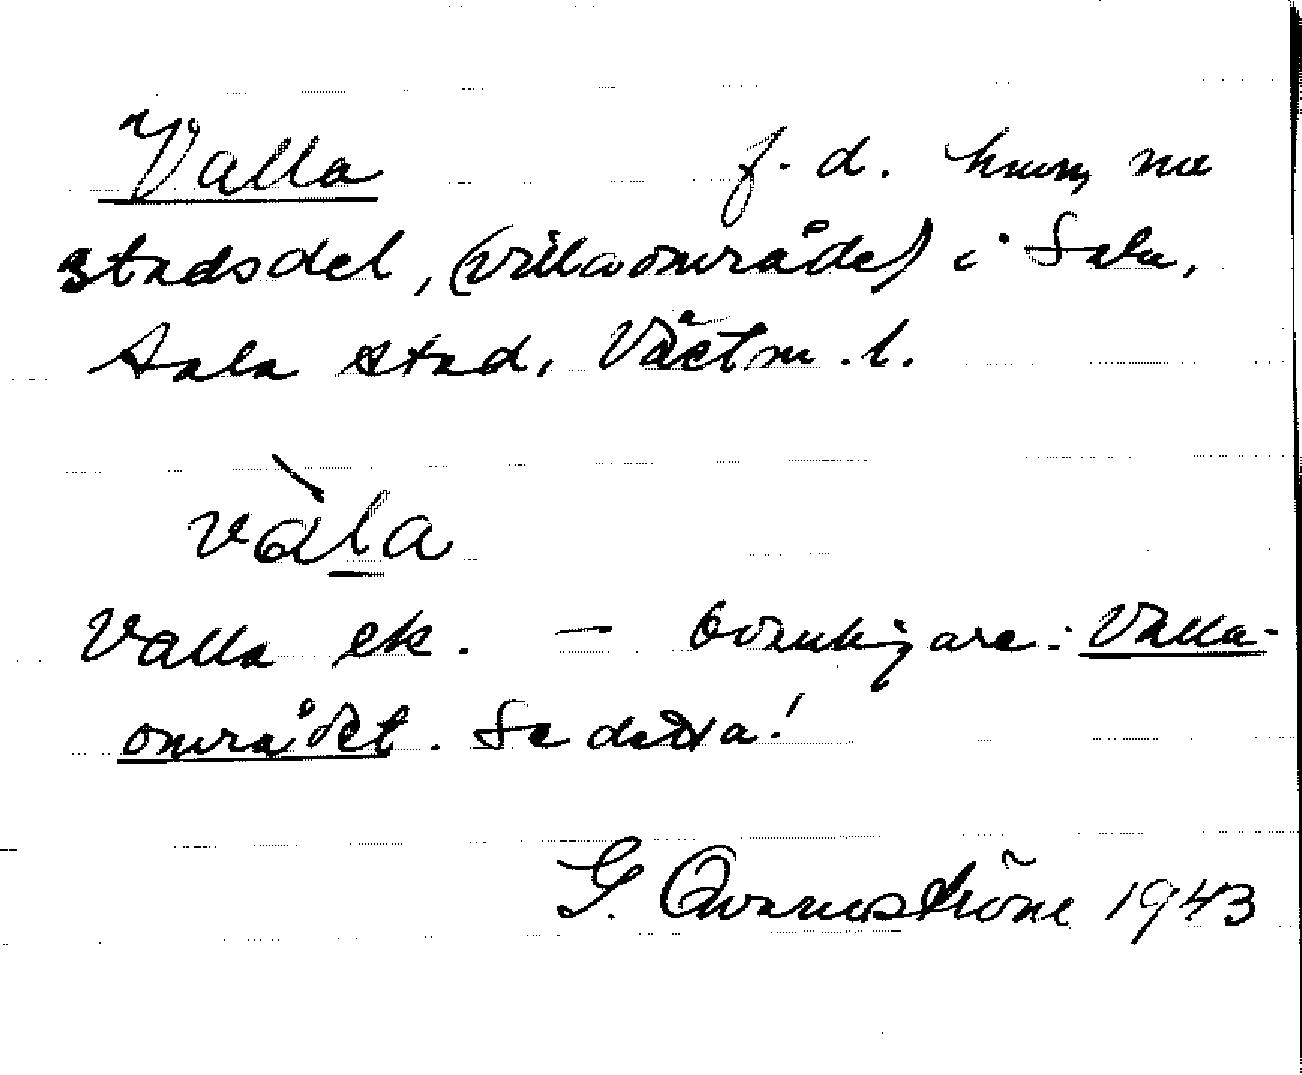 Valla f. d. hem, nu
stadsdel, (villaområde) i Sala,
Sala stad, Västm. l.
vàla
Valla ek. — Ovanligare: Valla-
området. Se detta!
G. Qvarnström 1943